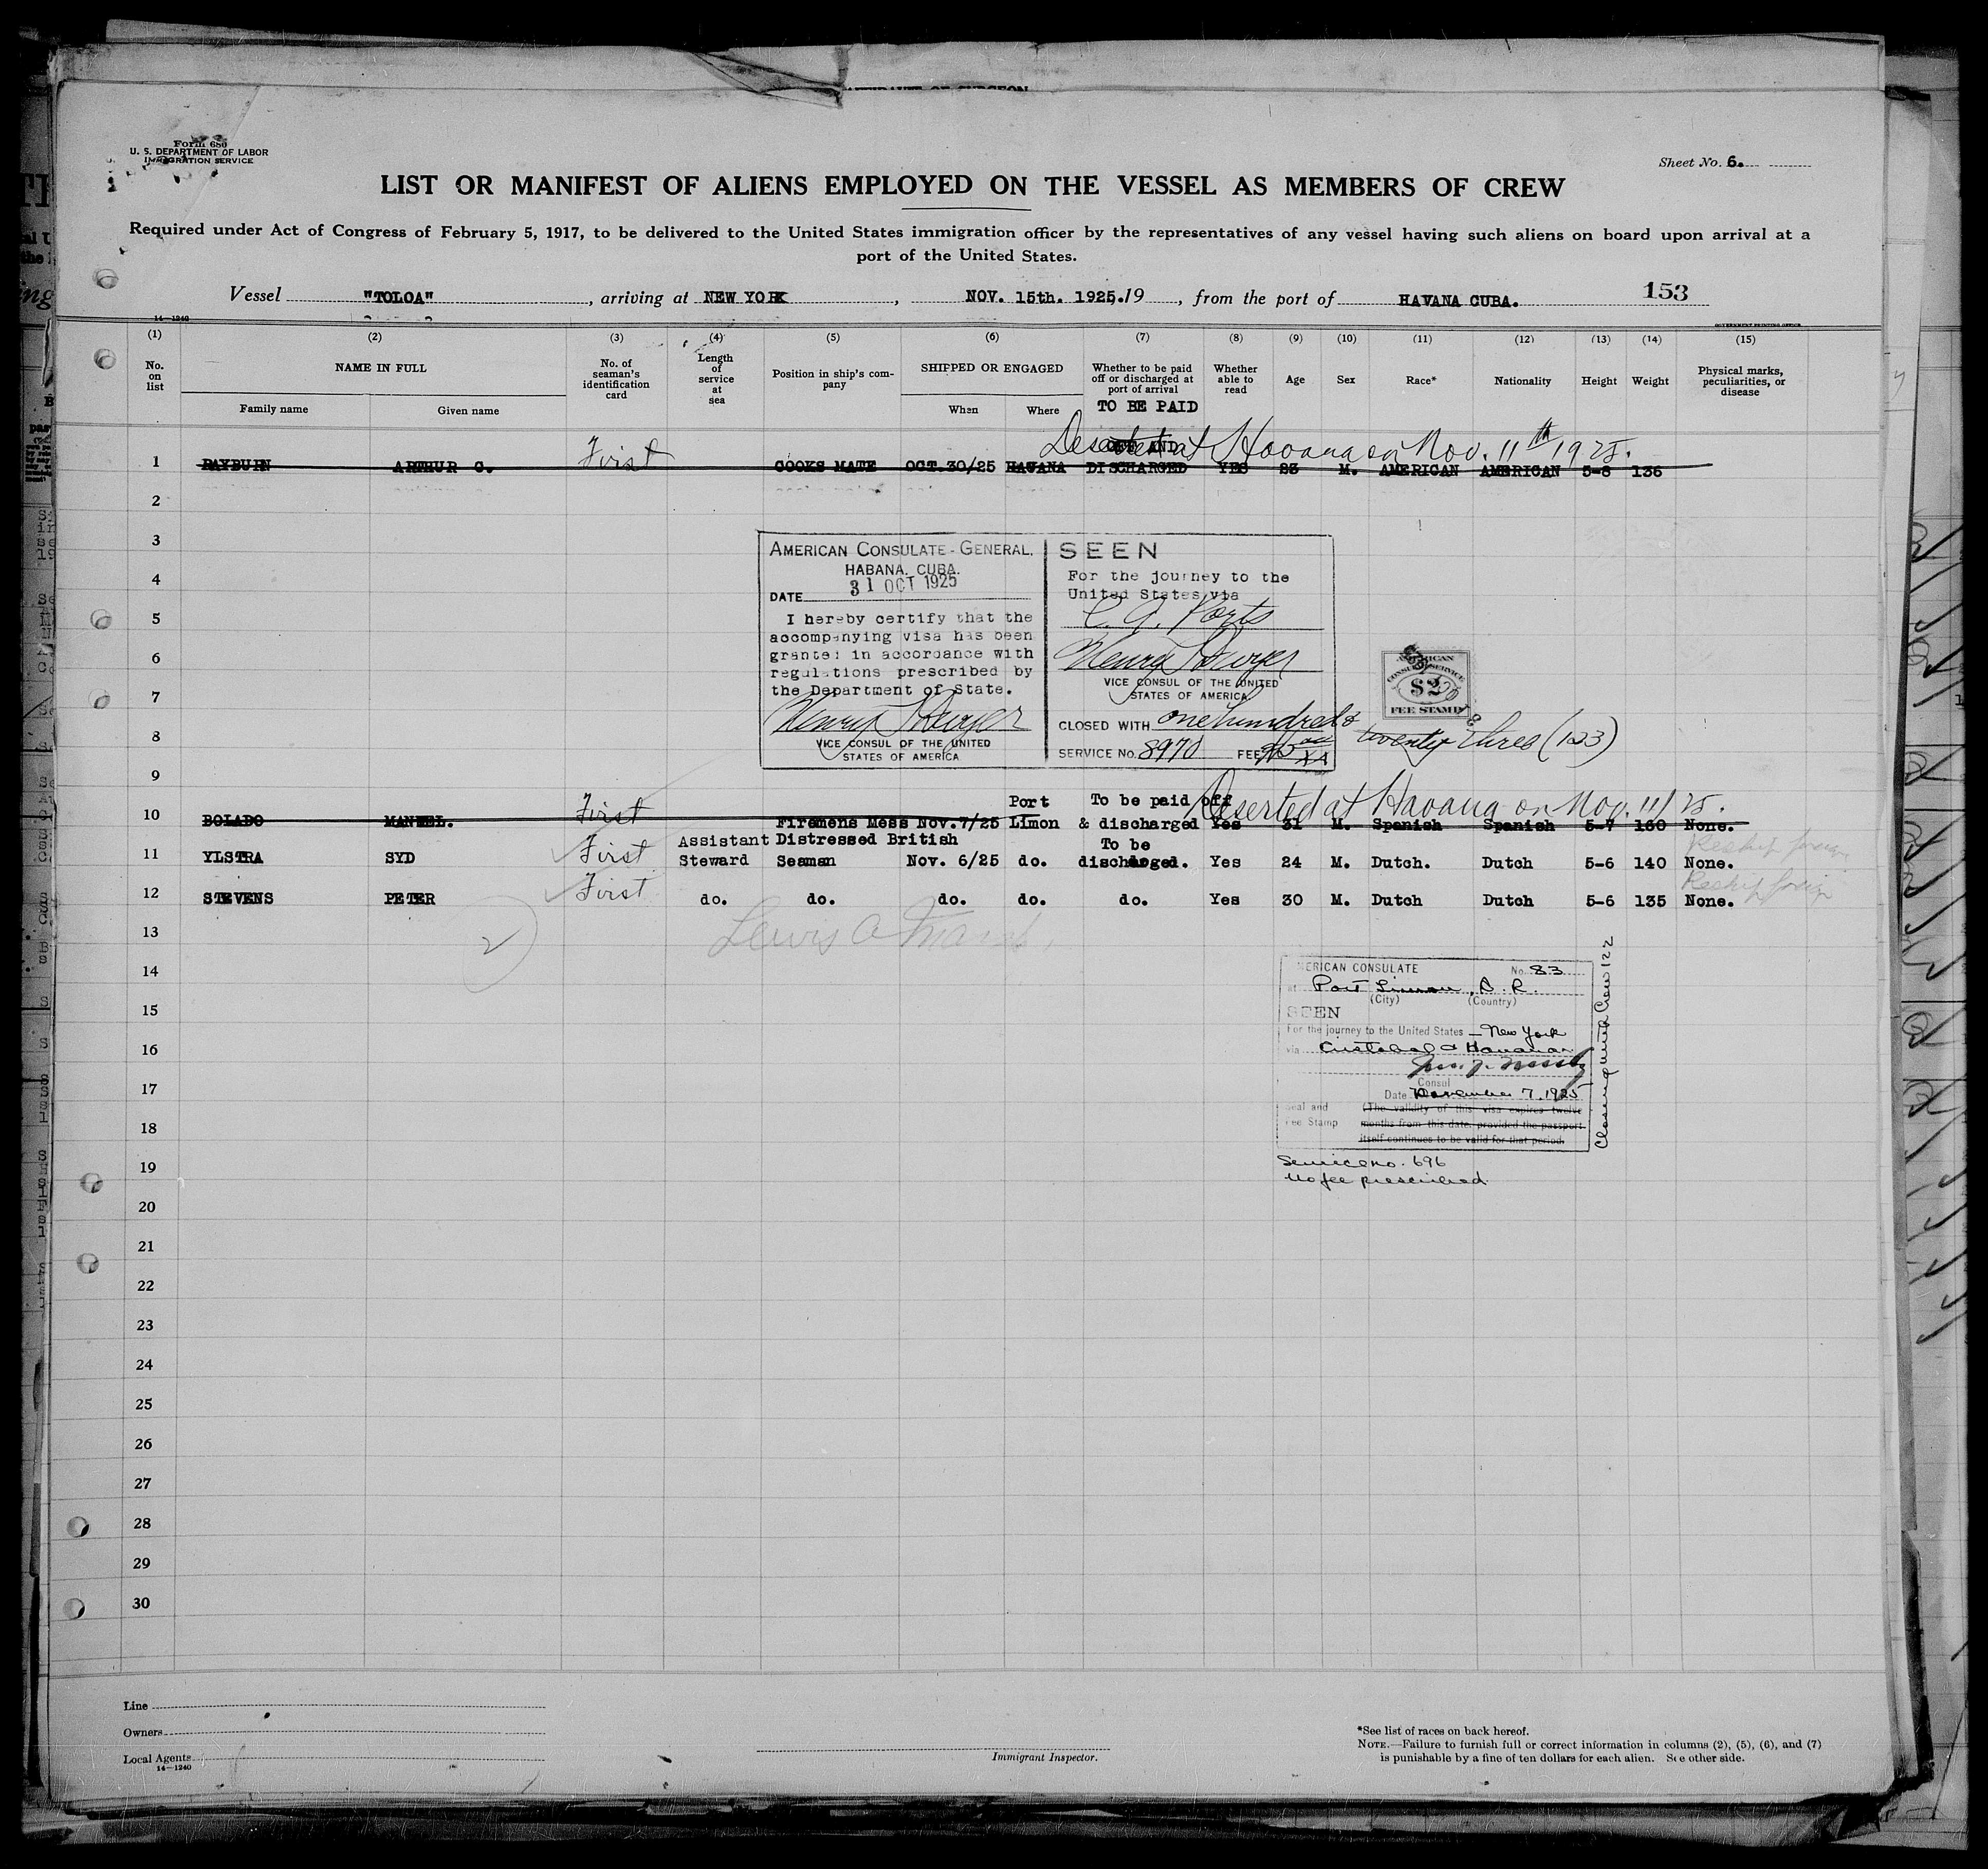 AFFIDAVIT OF SURGEON
Form 680
U. S. DEPARTMENT OF LABOR
IMMIGRATION SERVICE
Sheet No. 6.
LIST OR MANIFEST OF ALIENS EMPLOYED ON THE VESSEL AS MEMBERS OF CREW
Required under Act of Congress of February 5, 1917, to be delivered to the United States immigration officer by the representatives of any vessel having such aliens on board upon arrival at a
port of the United States.
Vessel "TOLOA", arriving at NEW YORK, NOV. 15th. 1925. 19, from the port of HAVANA CUBA. 153
14—1240 GOVERNMENT PRINTING OFFICE
(1) (2) (3) (4) (5) (6) (7) (8) (9) (10) (11) (12) (13) (14) (15)
No. on list
NAME IN FULL
Family name Given name
No. of seaman's identification card
Length of service at sea
Position in ship's company
SHIPPED OR ENGAGED
When Where
Whether to be paid off or discharged at port of arrival
Whether able to read
Age Sex Race* Nationality Height Weight
Physical marks, peculiarities, or disease
TO BE PAID
OFF AND Deserted at Havana on Nov. 11th 1925.
1 RAYBURN ARTHUR C. First COOKS MATE OCT.30/25 HAVANA DISCHARGED YES 23 M. AMERICAN AMERICAN 5-8 136
2
3
4
5
6
7
8
9
AMERICAN CONSULATE-GENERAL,
HABANA, CUBA.
DATE 31 OCT 1925
I hereby certify that the
accompanying visa has been
granted in accordance with
regulations prescribed by
the Department of State.
VICE CONSUL OF THE UNITED
STATES OF AMERICA
SEEN
For the journey to the
United States via
C. A. Ports
VICE CONSUL OF THE UNITED
STATES OF AMERICA
CLOSED WITH one hundred &
twenty three (123)
SERVICE No. 8970 FEE
AMERICAN
CONSULAR SERVICE
$2
FEE STAMP
Port To be paid off Deserted at Havana on Nov. 11/25.
10 BOLADO MANUEL. First Firemens Mess Nov.7/25 Limon & discharged Yes 31 M. Spanish Spanish 5-7 160 None.
Assistant Distressed British To be Reship foreign
11 YLSTRA SYD First Steward Seaman Nov. 6/25 do. discharged. Yes 24 M. Dutch. Dutch 5-6 140 None.
Reship foreign
12 STEVENS PETER First do. do. do. do. do. Yes 30 M. Dutch Dutch 5-6 135 None.
2
13
14
15
16
17
18
19
20
21
22
23
24
25
26
27
28
29
30
AMERICAN CONSULATE No. 83
at Port Limon, C. R.
(City) (Country)
SEEN
For the journey to the United States — New York
via Cristobal & Havana
Consul
Date November 7, 1925
Seal and Fee Stamp
(The validity of this visa expires twelve
months from this date, provided the passport
itself continues to be valid for that period.
Service no. 696
No fee prescribed
Closing with Crew 122
Line
Owners
Local Agents
14—1240
Immigrant Inspector.
*See list of races on back hereof.
NOTE.—Failure to furnish full or correct information in columns (2), (5), (6), and (7)
is punishable by a fine of ten dollars for each alien. See other side.